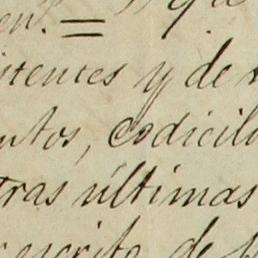 en. = que
istentes y de
ntos, codicilo
tras últimas
escrito de